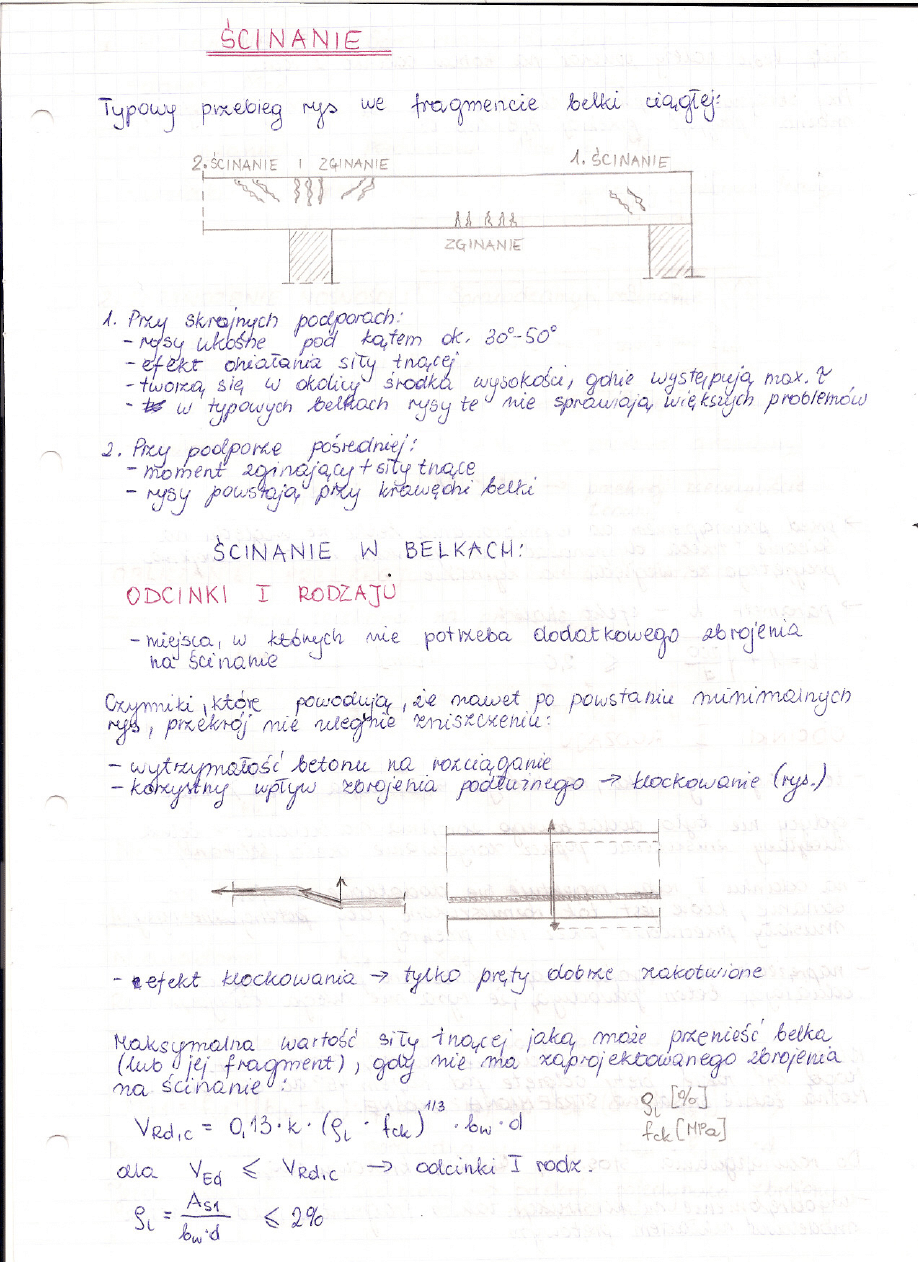 ŚCINANIE
Typowy przebieg rys we fragmencie belki ciągłej:
2. ŚCINANIE I ZGINANIE
1. ŚCINANIE
ZGINANIE
1. Przy skrajnych podporach:
- rysy ukośne pod kątem ok. 30°-50°
- efekt działania siły tnącej
- tworzą się w okolicy środka wysokości, gdzie występują max. τ
- w typowych belkach rysy te nie sprawiają większych problemów
2. Przy podporze pośredniej:
- moment zginający + siły tnące
- rysy powstają przy krawędzi belki
ŚCINANIE W BELKACH:
ODCINKI I RODZAJU
- miejsca, w których nie potrzeba dodatkowego zbrojenia
na ścinanie
Czynniki, które powodują, że nawet po powstaniu minimalnych
rys, przekrój nie ulegnie zniszczeniu:
- wytrzymałość betonu na rozciąganie
- korzystny wpływ zbrojenia podłużnego → klockowanie (rys.)
- efekt klockowania → tylko pręty dobrze zakotwione
Maksymalna wartość siły tnącej jaką może przenieść belka
(lub jej fragment), gdy nie ma zaprojektowanego zbrojenia
na ścinanie:
V_Rd,c = 0,13 · k · (ρ_l · f_ck)^1/3 · b_w · d
ρ_l [%]
f_ck [MPa]
dla V_Ed ≤ V_Rd,c → odcinki I rodz.
ρ_l = A_s1 / b_w·d ≤ 2%